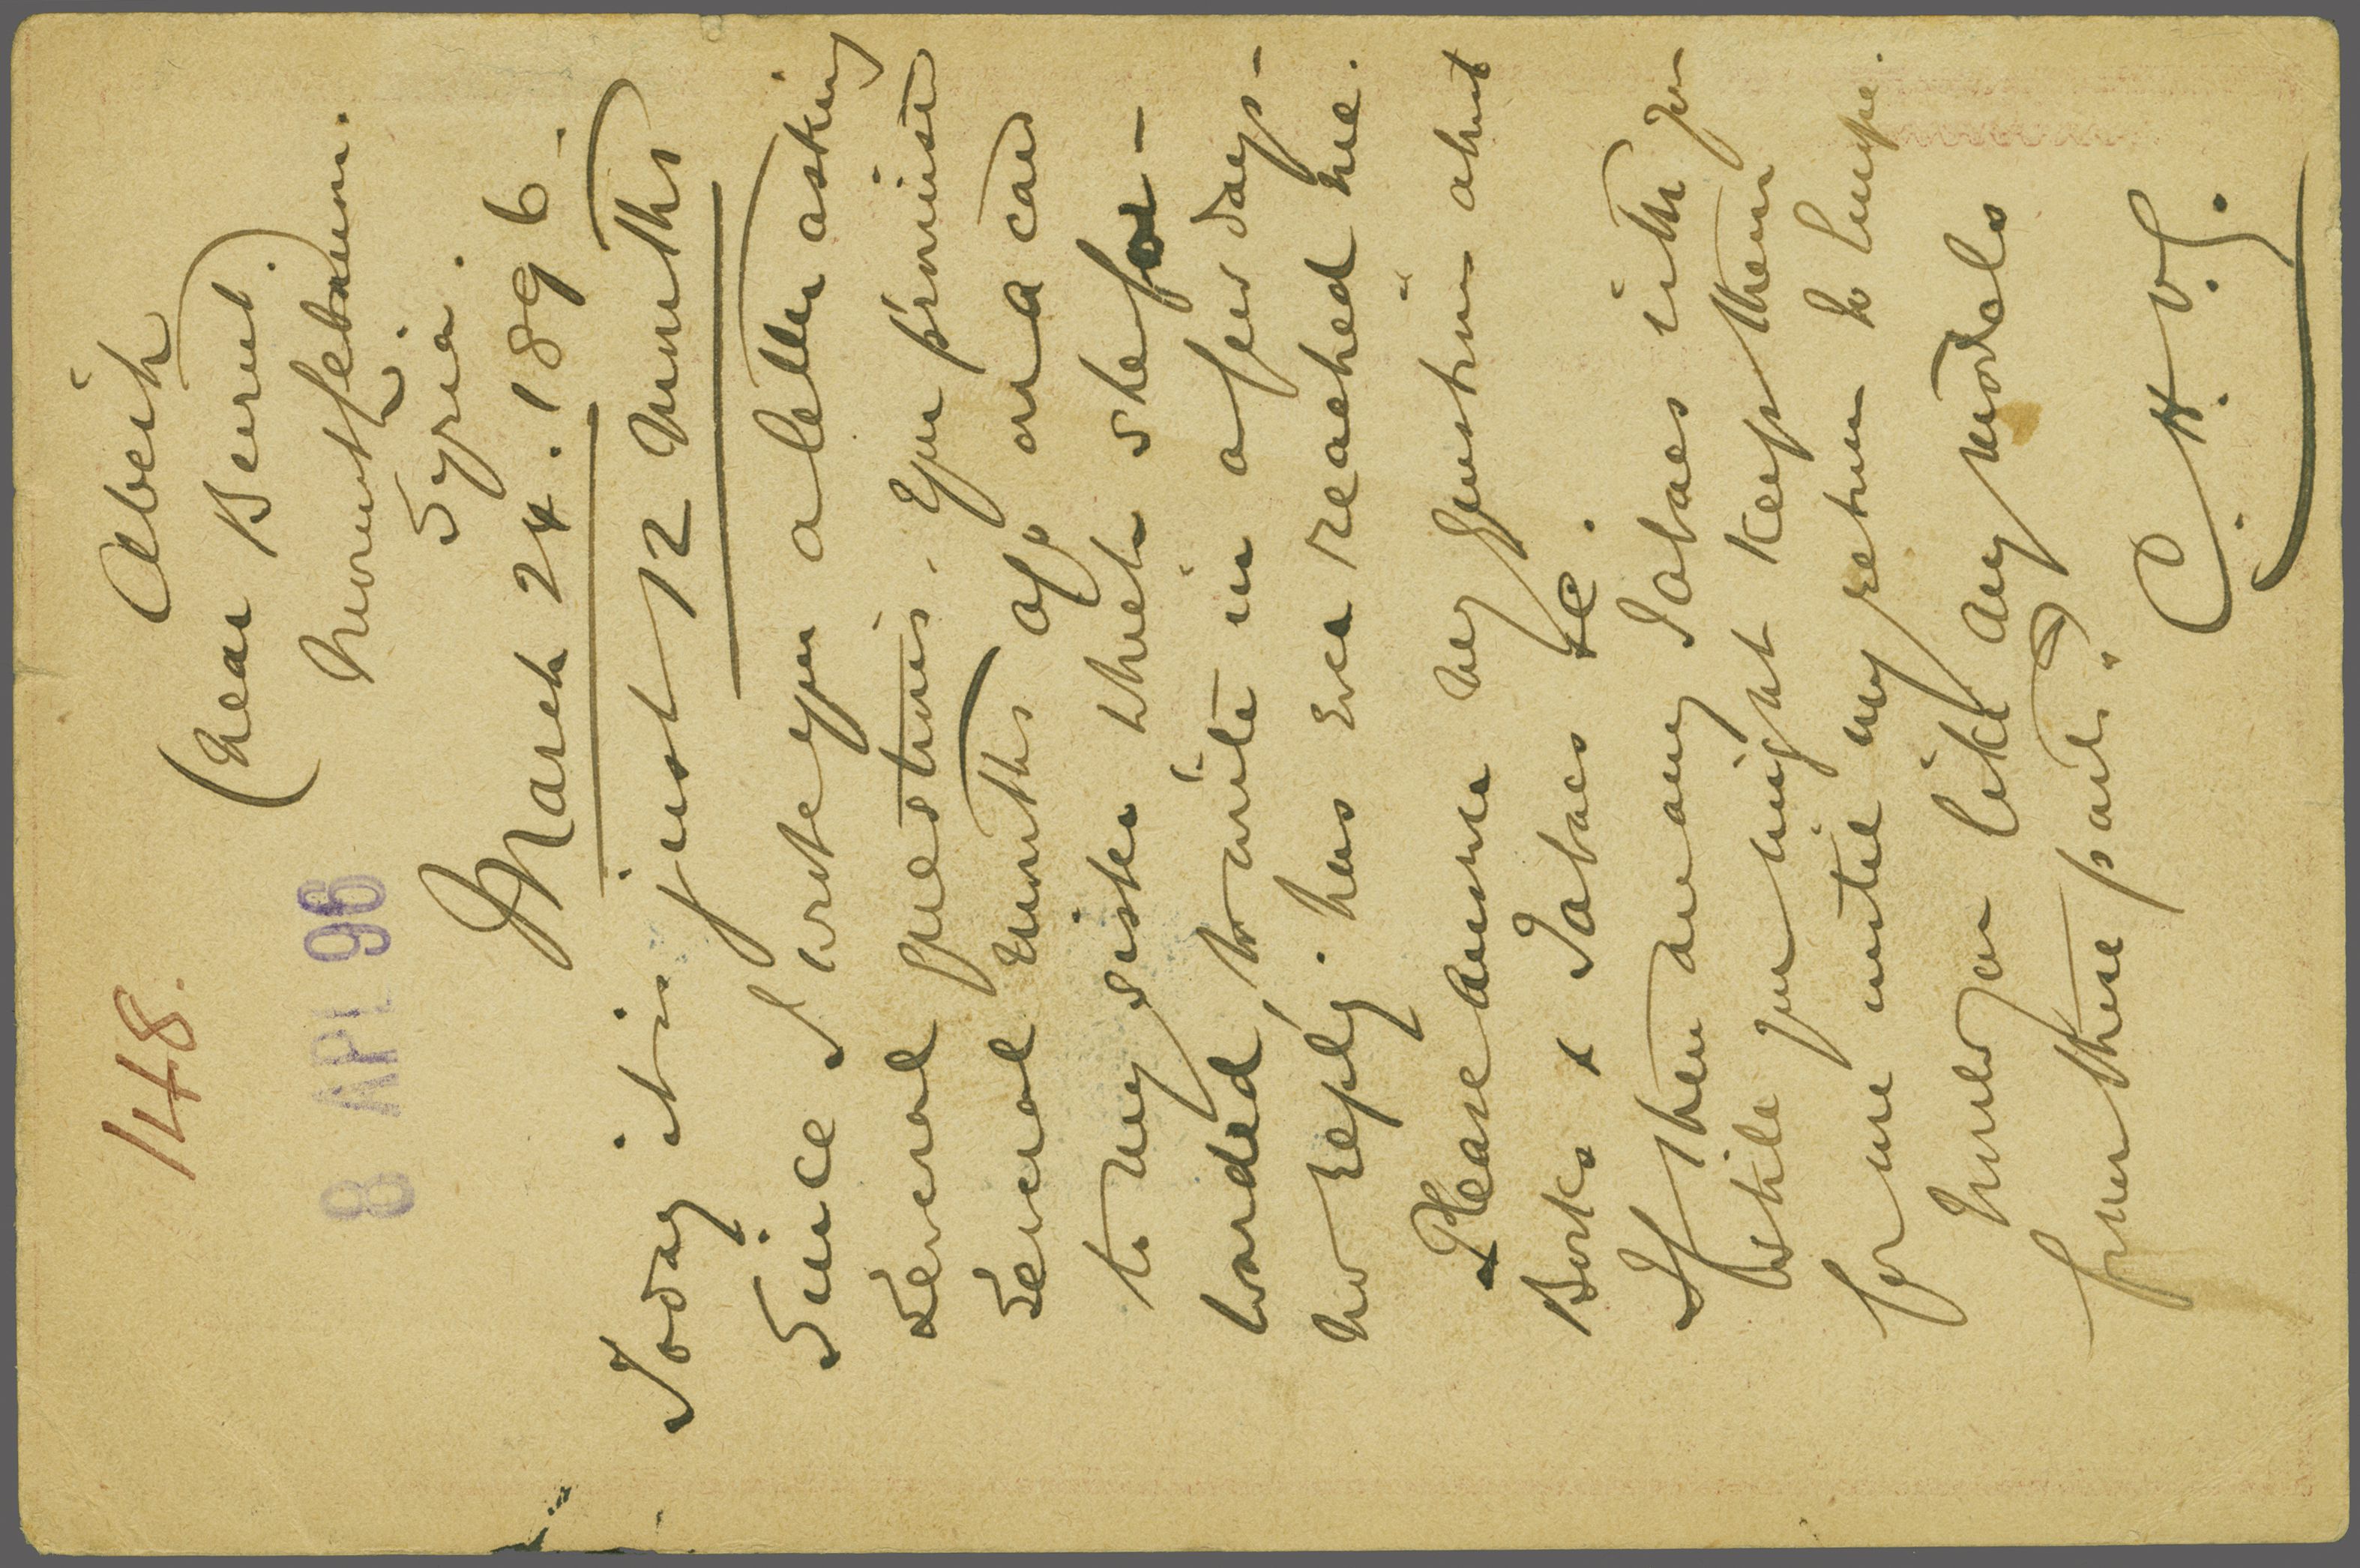 148.
8 APL 96
Abeih
(near Beirut)
Mount Lebanon.
Syria.
March 24. 1896.
Today it is just 12 months
Since I wrote you a letter asking
several questions. You promised
several months ago on a card
to my sister which she for-
warded, to write in a few days-
no reply. has ever reached me.
Please answer my question about
Books & Tabaes &c.
If there are any Tabaes with you
while you might keep them
for me until my return to Europe.
Would you like any models
from these parts?
C. H. V. G.